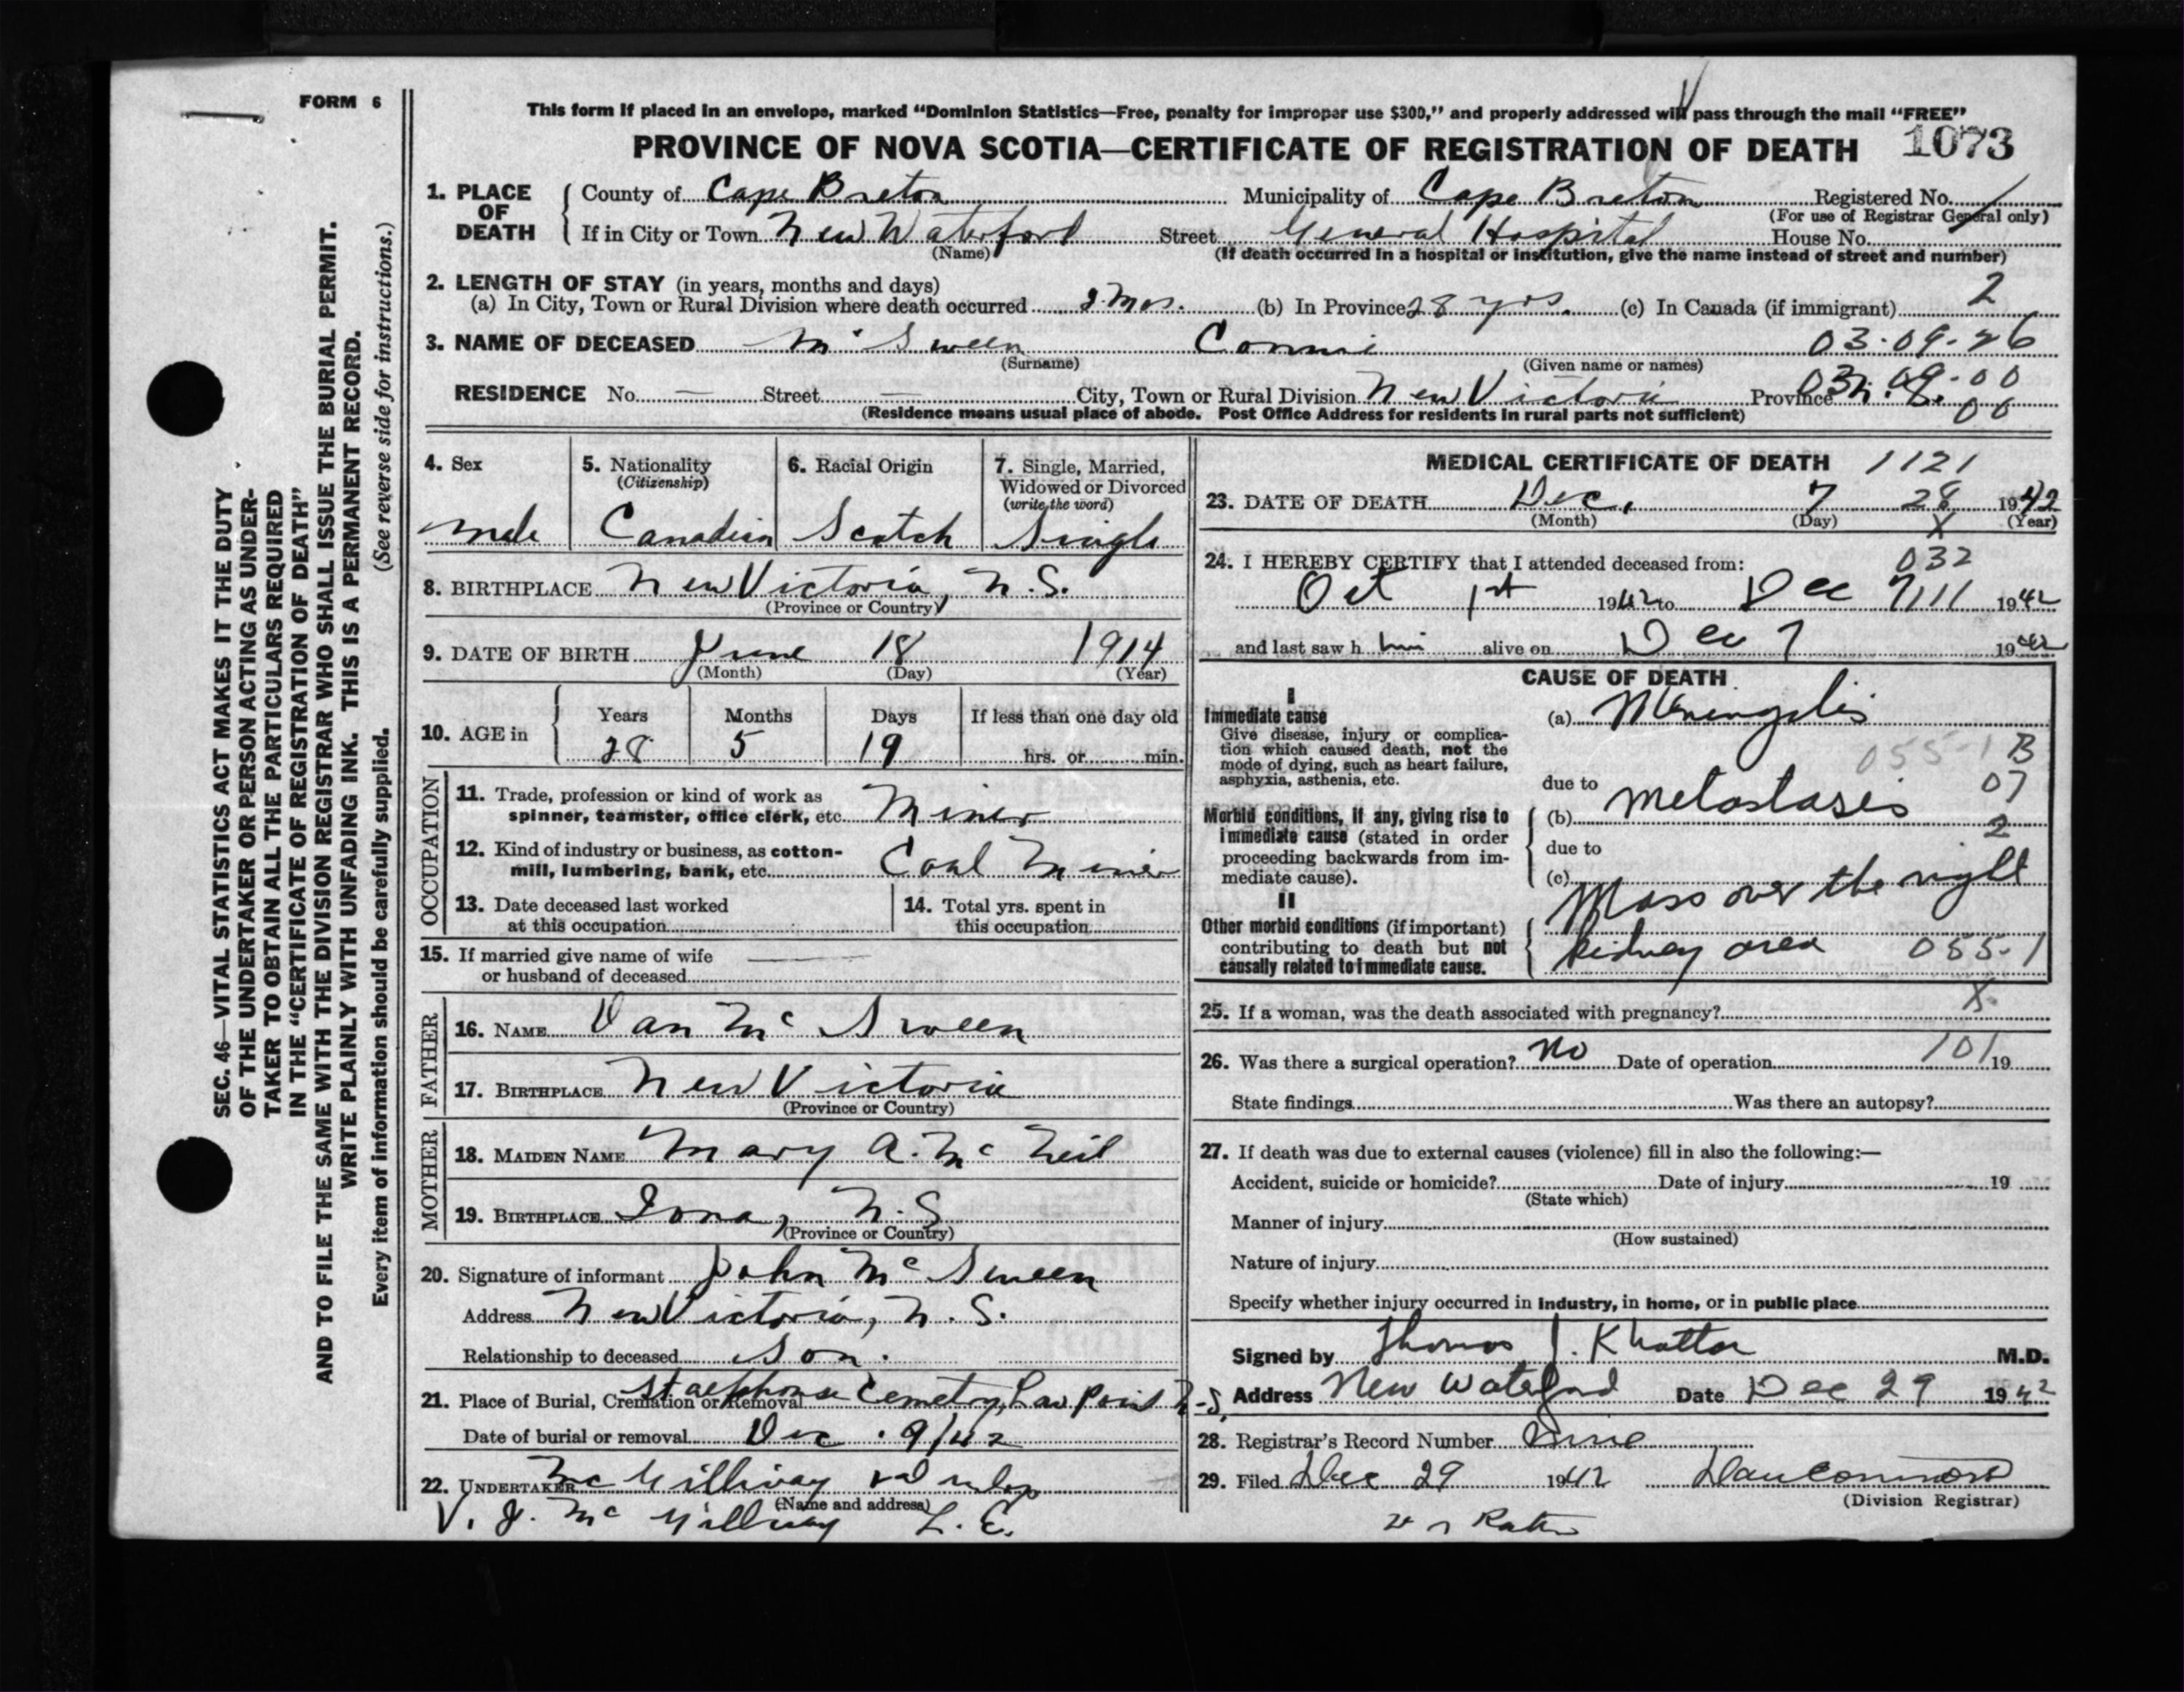 FORM 6
This form if placed in an envelope, marked “Dominion Statistics—Free, penalty for improper use $300,” and properly addressed will pass through the mail “FREE”
PROVINCE OF NOVA SCOTIA—CERTIFICATE OF REGISTRATION OF DEATH 1073
1. PLACE OF DEATH County of Cape Breton Municipality of Cape Breton Registered No.
(For use of Registrar General only)
If in City or Town New Waterford Street General Hospital House No.
(Name) (If death occurred in a hospital or institution, give the name instead of street and number)
2. LENGTH OF STAY (in years, months and days) 2
(a) In City, Town or Rural Division where death occurred 2 Mos. (b) In Province 28 yrs. (c) In Canada (if immigrant)
3. NAME OF DECEASED Mc Sween Connie 03-09-26
(Surname) (Given name or names)
RESIDENCE No. — Street — City, Town or Rural Division New Victoria Province N. S. 03-09-00
(Residence means usual place of abode. Post Office Address for residents in rural parts not sufficient) 00
4. Sex 5. Nationality 6. Racial Origin 7. Single, Married,
(Citizenship) Widowed or Divorced
(write the word)
Male Canadian Scotch Single
8. BIRTHPLACE New Victoria, N.S.
(Province or Country)
9. DATE OF BIRTH June 18 1914
(Month) (Day) (Year)
10. AGE in Years Months Days If less than one day old
28 5 19 hrs. or min.
OCCUPATION
11. Trade, profession or kind of work as
spinner, teamster, office clerk, etc. Miner
12. Kind of industry or business, as cotton-
mill, lumbering, bank, etc. Coal
13. Date deceased last worked 14. Total yrs. spent in
at this occupation this occupation
15. If married give name of wife —
or husband of deceased
FATHER
16. NAME Dan Mc Sween
17. BIRTHPLACE New Victoria
(Province or Country)
MOTHER
18. MAIDEN NAME Mary A. Mc Neil
19. BIRTHPLACE Iona, N. S
(Province or Country)
20. Signature of informant John Mc Sween
Address New Victoria, N. S.
Relationship to deceased Son.
21. Place of Burial, Cremation or Removal Cemetry,
Date of burial or removal Dec. 9/42
22. UNDERTAKER Mc Gillivray
(Name and address)
V. J. Mc Gillivray L. E.
MEDICAL CERTIFICATE OF DEATH 1121
23. DATE OF DEATH Dec, 7 28 1942
(Month) (Day) X (Year)
24. I HEREBY CERTIFY that I attended deceased from: 032
Oct 1st 1942 to Dec 7 1942
and last saw h him alive on Dec 7 1942
CAUSE OF DEATH
I
Immediate cause
Give disease, injury or complica-
tion which caused death, not the
mode of dying, such as heart failure,
asphyxia, asthenia, etc.
(a) Meningitis
055-1 B
due to 07
Morbid conditions, if any, giving rise to
immediate cause (stated in order
proceeding backwards from im-
mediate cause).
(b) metastasis
2
due to
(c)
II
Other morbid conditions (if important)
contributing to death but not
causally related to immediate cause.
Mass over the right
kidney area 055-1
25. If a woman, was the death associated with pregnancy? X
26. Was there a surgical operation? No Date of operation 101 19
State findings Was there an autopsy?
27. If death was due to external causes (violence) fill in also the following:—
Accident, suicide or homicide? Date of injury 19
(State which)
Manner of injury
(How sustained)
Nature of injury
Specify whether injury occurred in industry, in home, or in public place
Signed by Thomas J. Khattar M.D.
Address New Waterford Date Dec 29 1942
28. Registrar's Record Number
29. Filed Dec 29 1942 Dan Connors
(Division Registrar)
SEC. 46—VITAL STATISTICS ACT MAKES IT THE DUTY
OF THE UNDERTAKER OR PERSON ACTING AS UNDER-
TAKER TO OBTAIN ALL THE PARTICULARS REQUIRED
IN THE “CERTIFICATE OF REGISTRATION OF DEATH”
AND TO FILE THE SAME WITH THE DIVISION REGISTRAR WHO SHALL ISSUE THE BURIAL PERMIT.
WRITE PLAINLY WITH UNFADING INK. THIS IS A PERMANENT RECORD.
Every item of information should be carefully supplied. (See reverse side for instructions.)